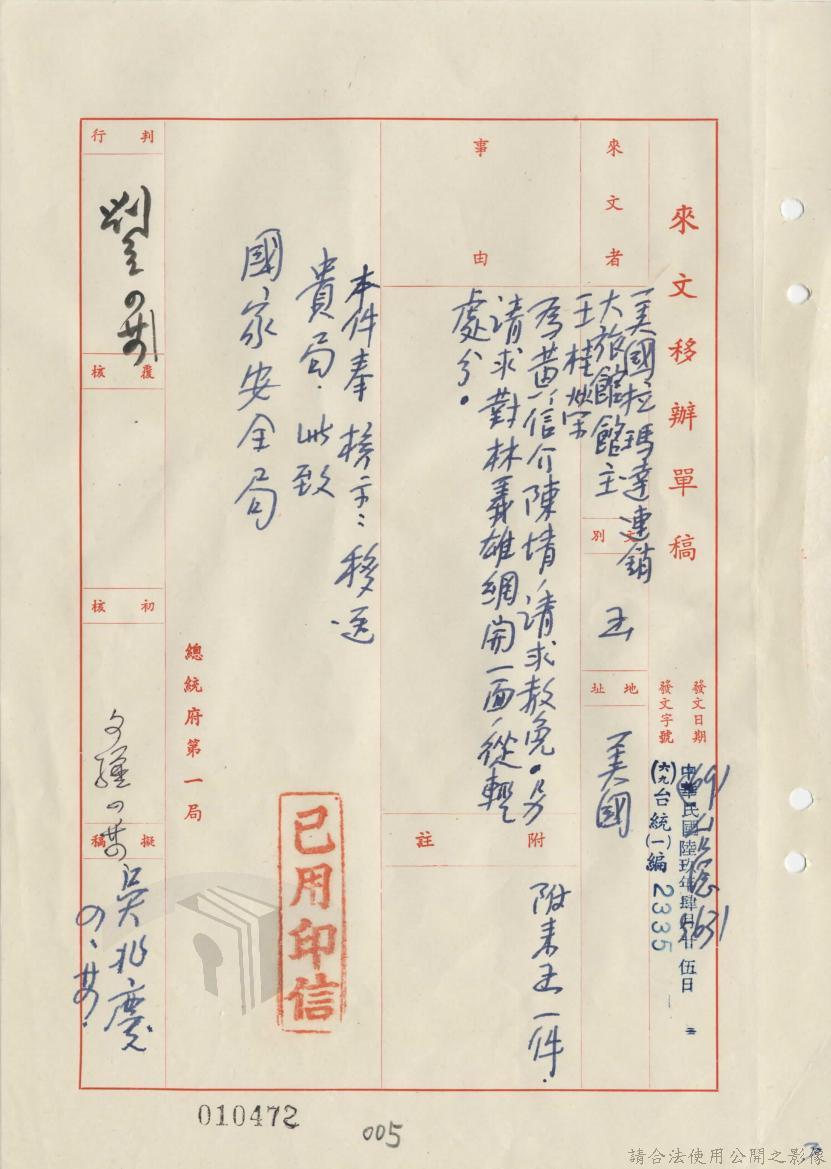 來文移辦單稿
發文日期
發文字號
中華民國陸玖年肆月廿伍日
(六九)台統(一)編 2335
來文者
美國拉瑪達連鎖
大旅館館主
王桂榮
文別
函
地址
美國
事由
為黃信介陳情,請求赦免。另
請求對林義雄網開一面,從輕
處分。
附註
附來函一件.
本件奉 核示:移送
貴局.此致
國家安全局
總統府第一局
已用印信
判行
覆核
初核
擬稿
吳兆慶
010472
005
請合法使用公開之影像